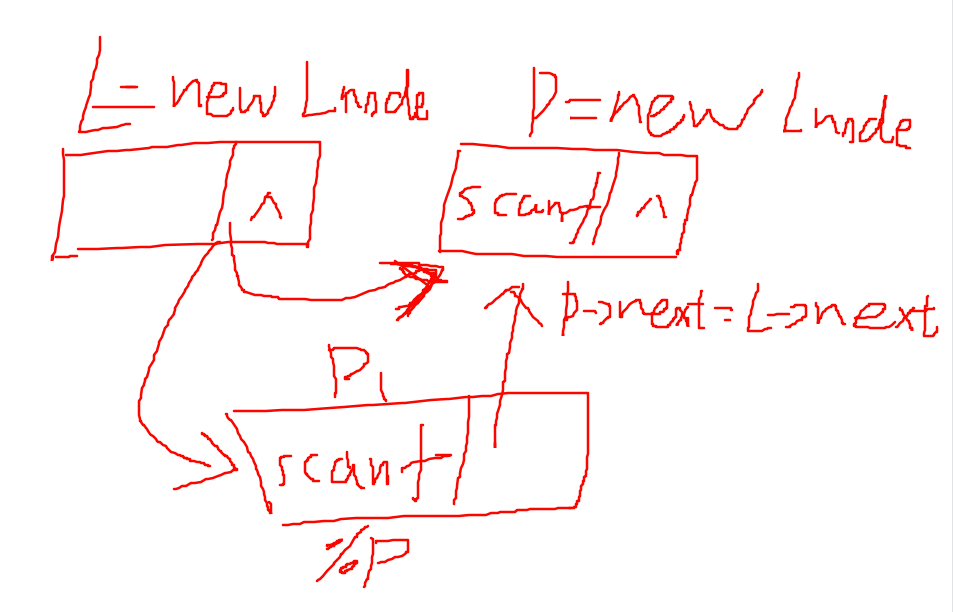 L = new Lnode
P = new Lnode
^
scanf
^
p->next = L->next
P1
scanf
%P